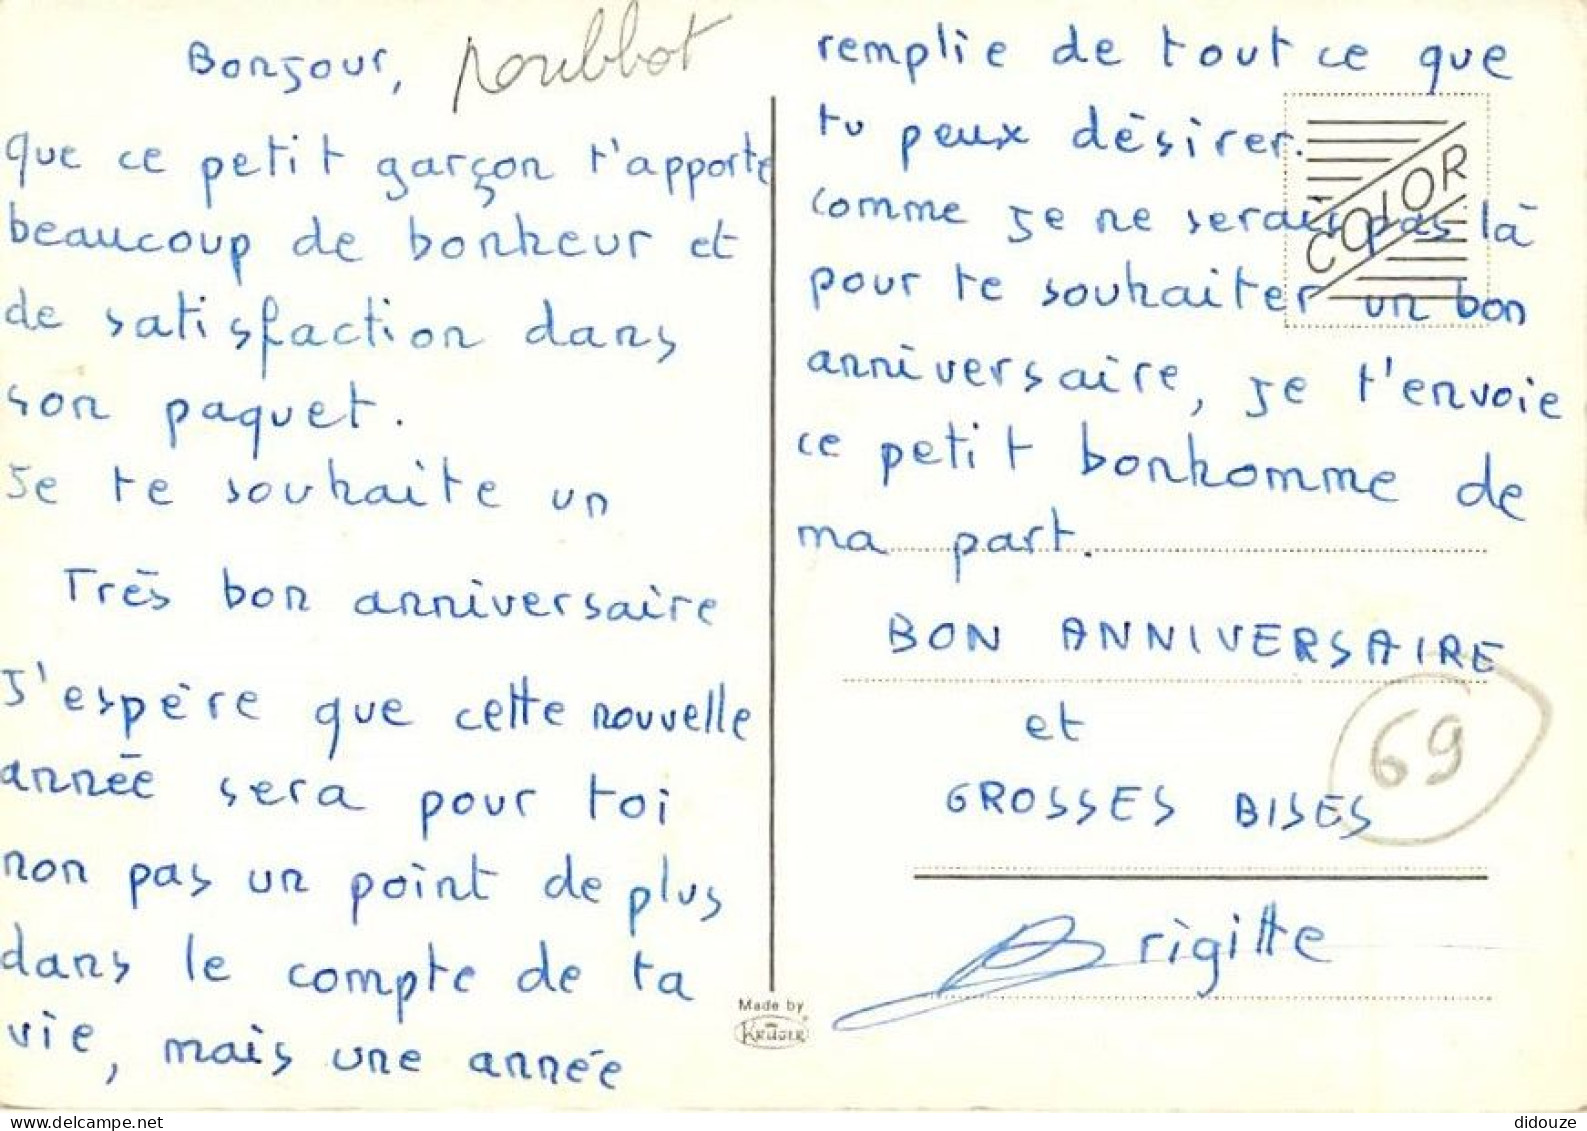 Bonjour,
poulbot
que ce petit garçon t'apporte
beaucoup de bonheur et
de satisfaction dans
son paquet.
Je te souhaite un
Très bon anniversaire
J'espère que cette nouvelle
année sera pour toi
non pas un point de plus
dans le compte de ta
vie, mais une année
remplie de tout ce que
tu peux désirer.
comme je ne serais pas là
pour te souhaiter un bon
anniversaire, je t'envoie
ce petit bonhomme de
ma part.
BON ANNIVERSAIRE
et
GROSSES BISES
Brigitte
COLOR
69
Made by
KRÜGER
didouze